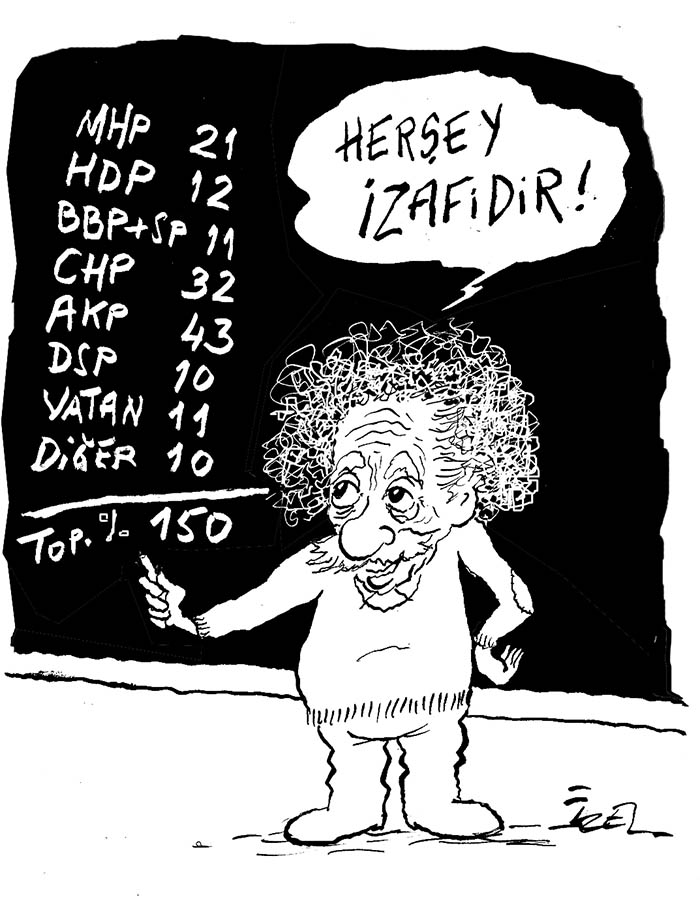 MHP 21
HDP 12
BBP+SP 11
CHP 32
AKP 43
DSP 10
VATAN 11
DİĞER 10
TOP. % 150
HERŞEY
İZAFİDİR!